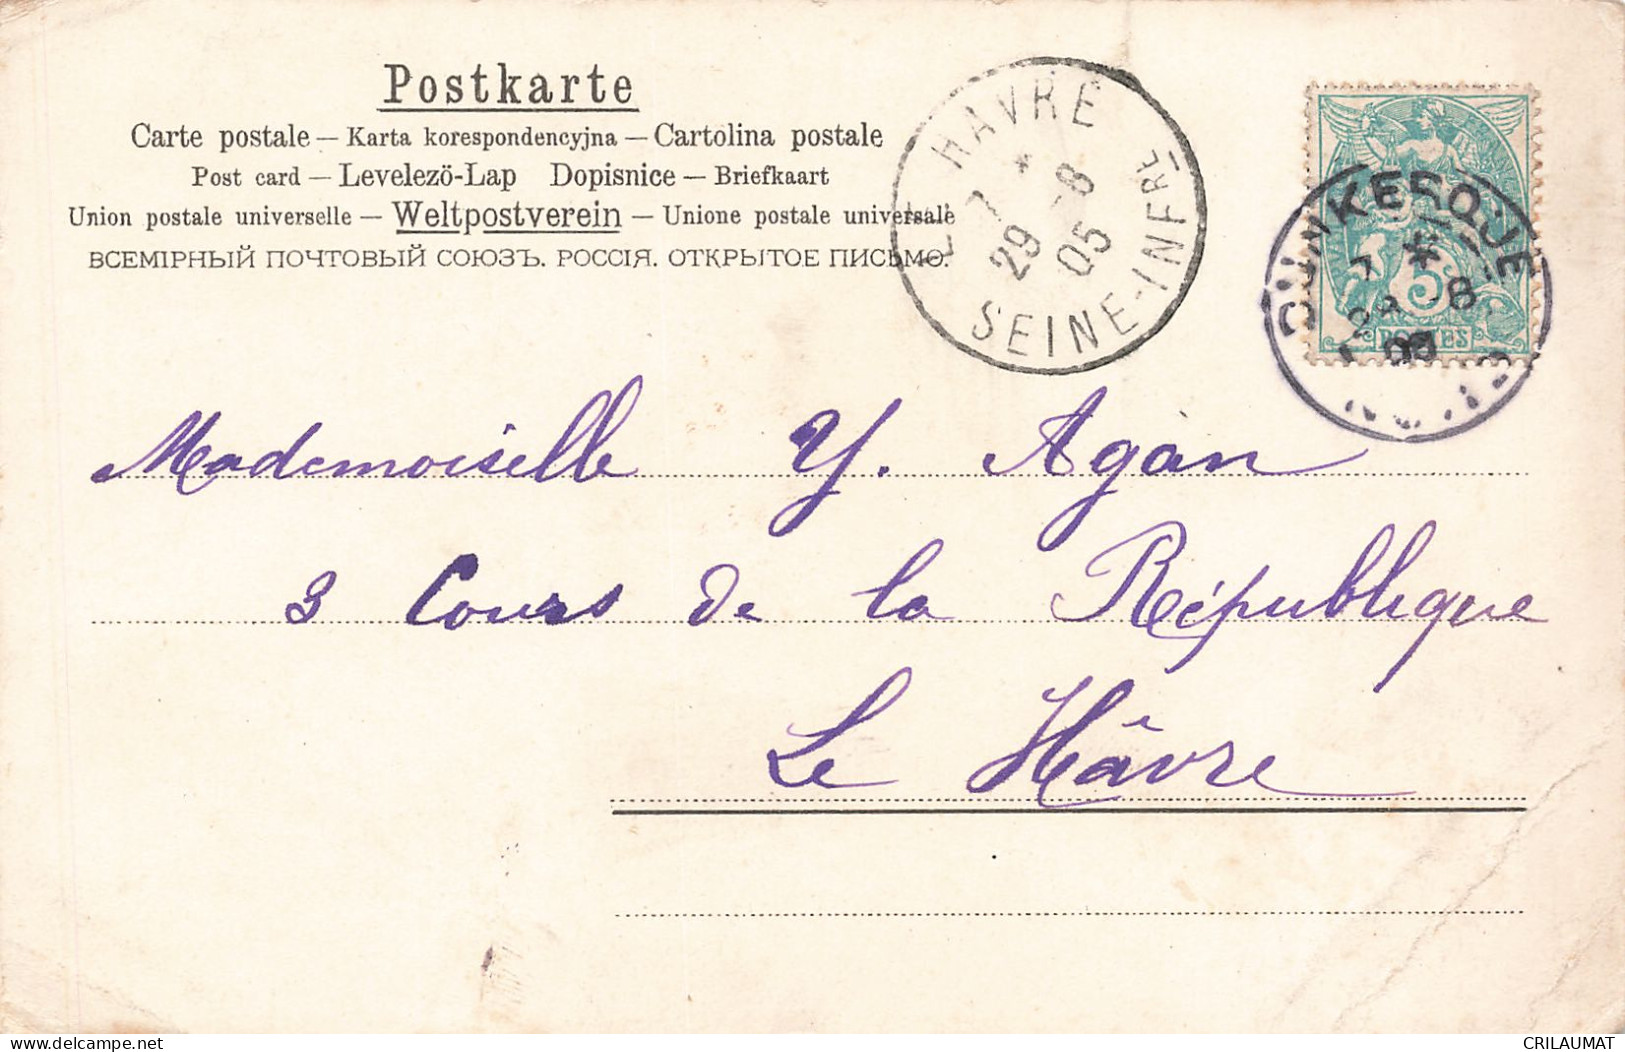 Postkarte
Carte postale — Karta korespondencyjna — Cartolina postale
Post card — Levelezö-Lap Dopisnice — Briefkaart
Union postale universelle — Weltpostverein — Unione postale universale
ВСЕМІРНЫЙ ПОЧТОВЫЙ СОЮЗЪ. РОССІЯ. ОТКРЫТОЕ ПИСЬМО.
HAVRE
7 *
29 -8
05
SEINE-INFRE
DUNKERQUE
7 *
-8
5
POSTES
Mademoiselle Y. Agan
3 Cours de la République
Le Hâvre
delcampe.net
CRILAUMAT